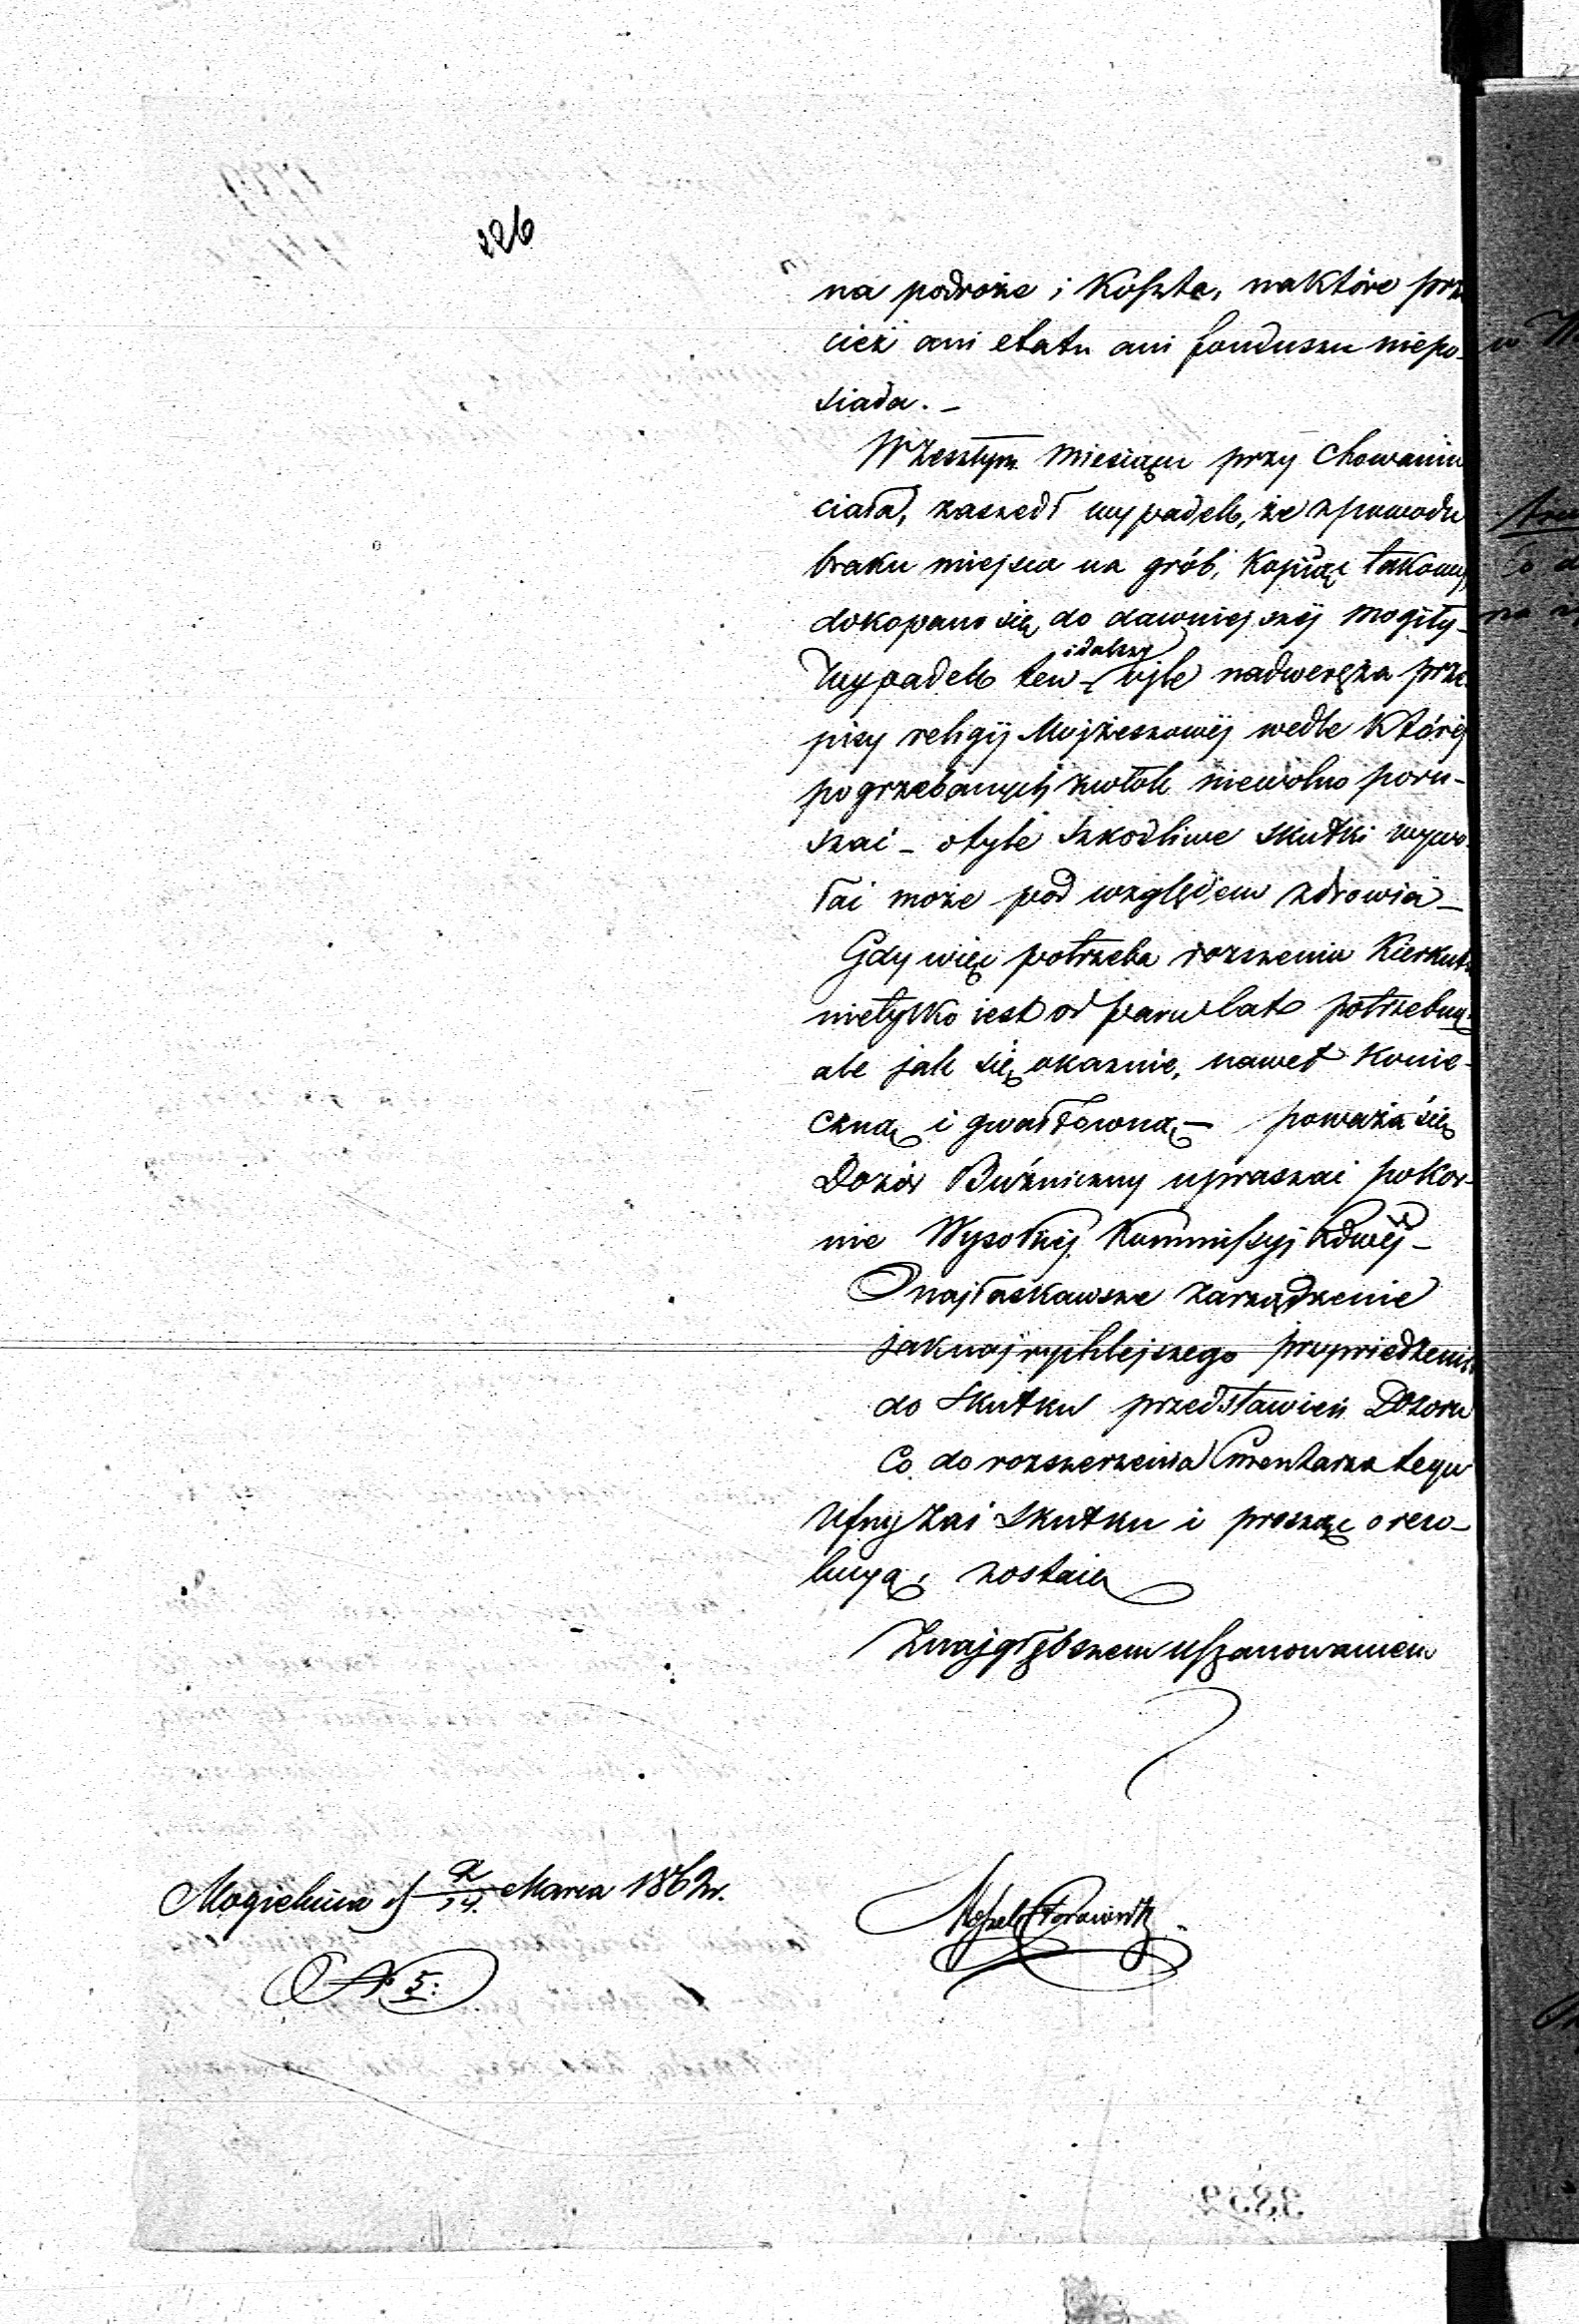 226
na podróże i koszta, naktóre prze
cież ani etatu ani funduszu niepo-
siada. -
W zeszłym miesiącu przy chowaniu
ciała, zaszedł wypadek, że zpowodu
braku miejsca na grób, kopiąc takowy,
dokopano się do dawniejszéj mogiły -
Wypadek ten - i dalszy tyle nadweręża prze
pisy religij Mojżeszowéj wedle któréj
pogrzebanych zwłok niewolno poru-
szać - otyle szkodliwe skutki wywo-
łać może pod względem zdrowia -
Gdy więc potrzeba rozszeniu Kierkuta
nietylko iest od paru lat potrzebną
ale jak się okazuie, nawet konie-
czną i gwałtowną - poważa się
Dozór Bużniczny upraszać pokor-
nie Wysokiéj Kommissyi Rdwéj -
O najłaskawsze zarządzenie
jaknajrychlejszego przywiedzenia
do skutku przedstawień Dozoru
Co do rozszerzenia Cmentarza tego
Ufny zaś skutku i prosząc o rezo-
lucyą, zostaie
Znajgłębszem uszanowaniem
Mogielnica d 2/14. Marca 1862 r.
N 5:
3852